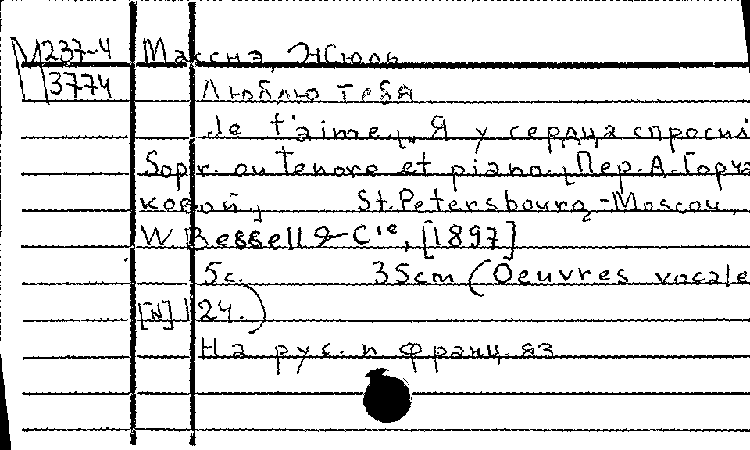 М237-4 Массна, Жюль
3774 Люблю тебя
Je t'aime, Я у сердца спросил
Sopr. ou Tenore et piano. [Пер. А. Горча
ковой] St. Petersbourg-Moscou,
W. Bessell & Cie, [1897]
5с. 35cm (Oeuvres vocale
[N] 24.)
На рус. и франц. яз.